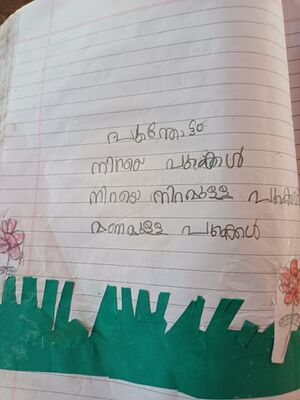 പൂന്തോട്ടം
നിറയെ പൂക്കൾ
നിറയെ നിറമുള്ള പൂക്കൾ
മണമുള്ള പൂക്കൾ